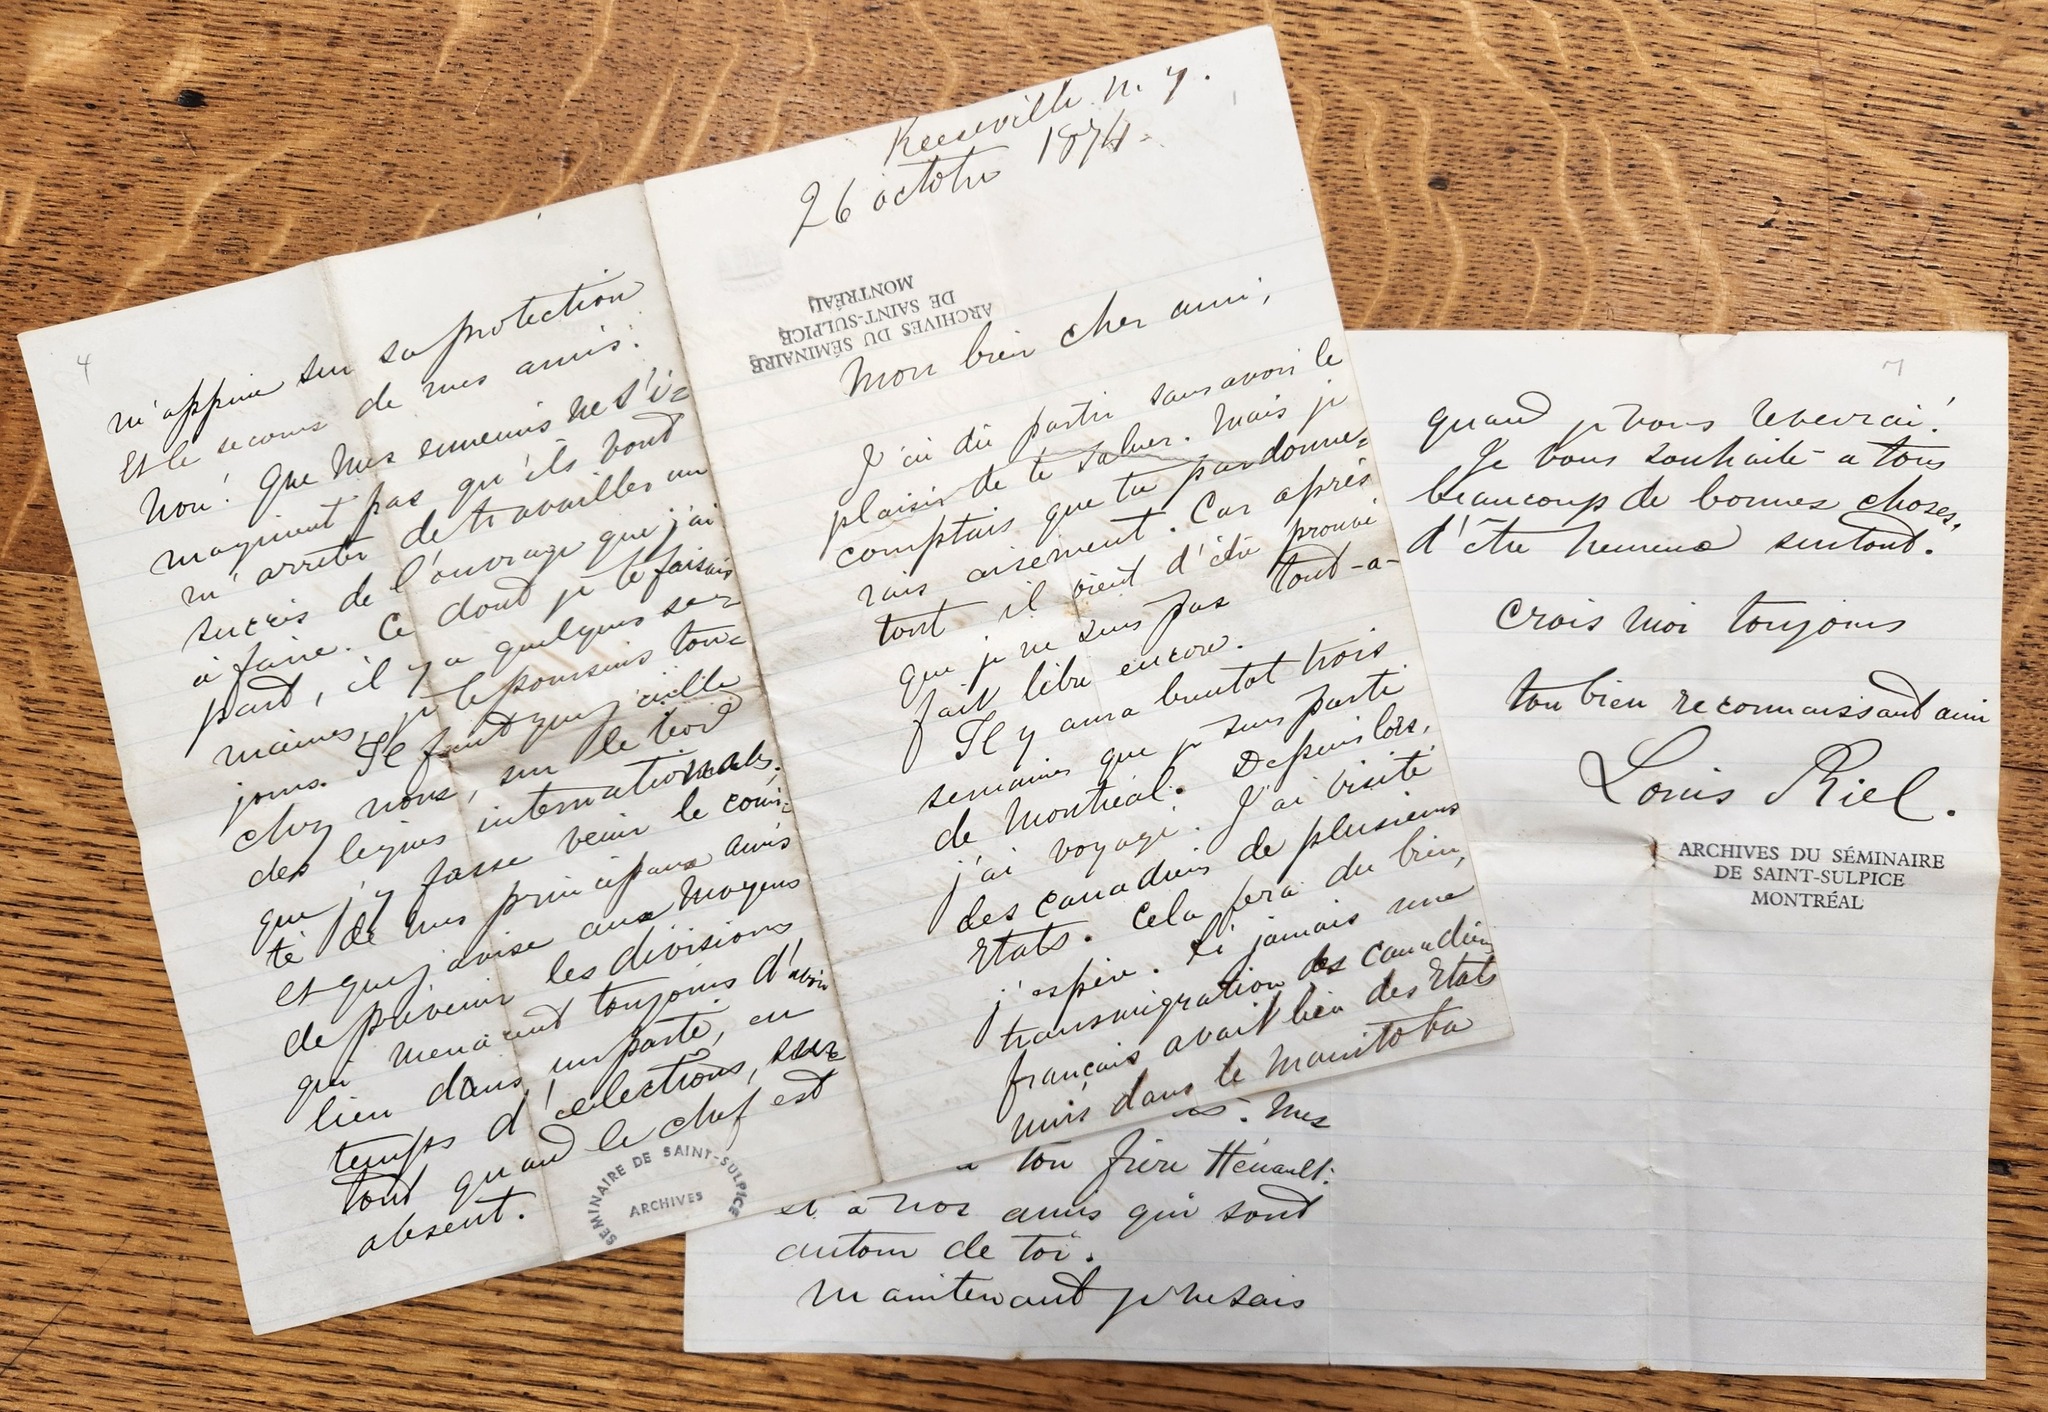 Keeseville N. Y.
26 octobre 1874.
1
ARCHIVES DU SÉMINAIRE
DE SAINT-SULPICE
MONTRÉAL
Mon bien cher ami,
J'ai dû partir sans avoir le
plaisir de te saluer. Mais je
comptais que tu pardonne-
rais aisément. Car après
tout il vient d'être prouvé
que je ne suis pas tout-a-
fait libre encore.
Il y aura bientot trois
semaines que je suis parti
de Montréal. Depuis lors,
j'ai voyagé. J'ai visité
des canadiens de plusieurs
Etats. Cela fera du bien,
j'espère. Si jamais une
transmigration des canadiens
français avait lieu des Etats
unis dans le Manitoba
4
m'appuie sur sa protection
et le secours de mes amis:
non! Que mes ennemis ne s'i=
maginent pas qu'ils vont
m'arrêter de travailler au
succès de l'ouvrage que j'ai
à faire. Ce dont je te faisais
part, il y a quelques se=
maines, je le poursuis tou=
jours. Il faut que j'aille
chez nous, sur le bord
des lignes internationales;
que j'y fasse venir le comi=
té de mes principaux amis
et que j'avise aux moyens
de prévenir les divisions
qui menacent toujours d'avoir
lieu dans un parti, en
temps d'élections, sur=
tout quand le chef est
absent.
SÉMINAIRE DE SAINT-SULPICE
ARCHIVES
Mes
à ton frère Hénault:
et à nos amis qui sont
autour de toi.
Maintenant je ne sais
7
quand je vous reverrai!
Je vous souhaite à tous
beaucoup de bonnes choses,
d'être heureux surtout.
Crois moi toujours
ton bien reconnaissant ami
Louis Riel.
ARCHIVES DU SÉMINAIRE
DE SAINT-SULPICE
MONTRÉAL